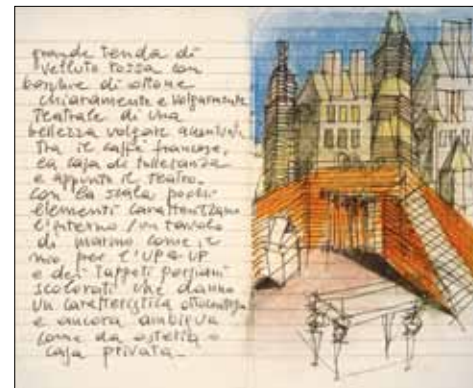 grande tenda di
velluto rossa con
borchie di ottone
chiaramente e volgarmente
teatrale di una
bellezza volgare
tra il caffè francese,
la casa di tolleranza
e appunto il teatro.
Con la scala pochi
elementi caratterizzano
l'interno / un tavolo
di marmo come il
mio per l'UP & UP
e dei tappeti persiani
scolorati che danno
un caratteristica
e ancora ambigua
come da osteria o
casa privata.